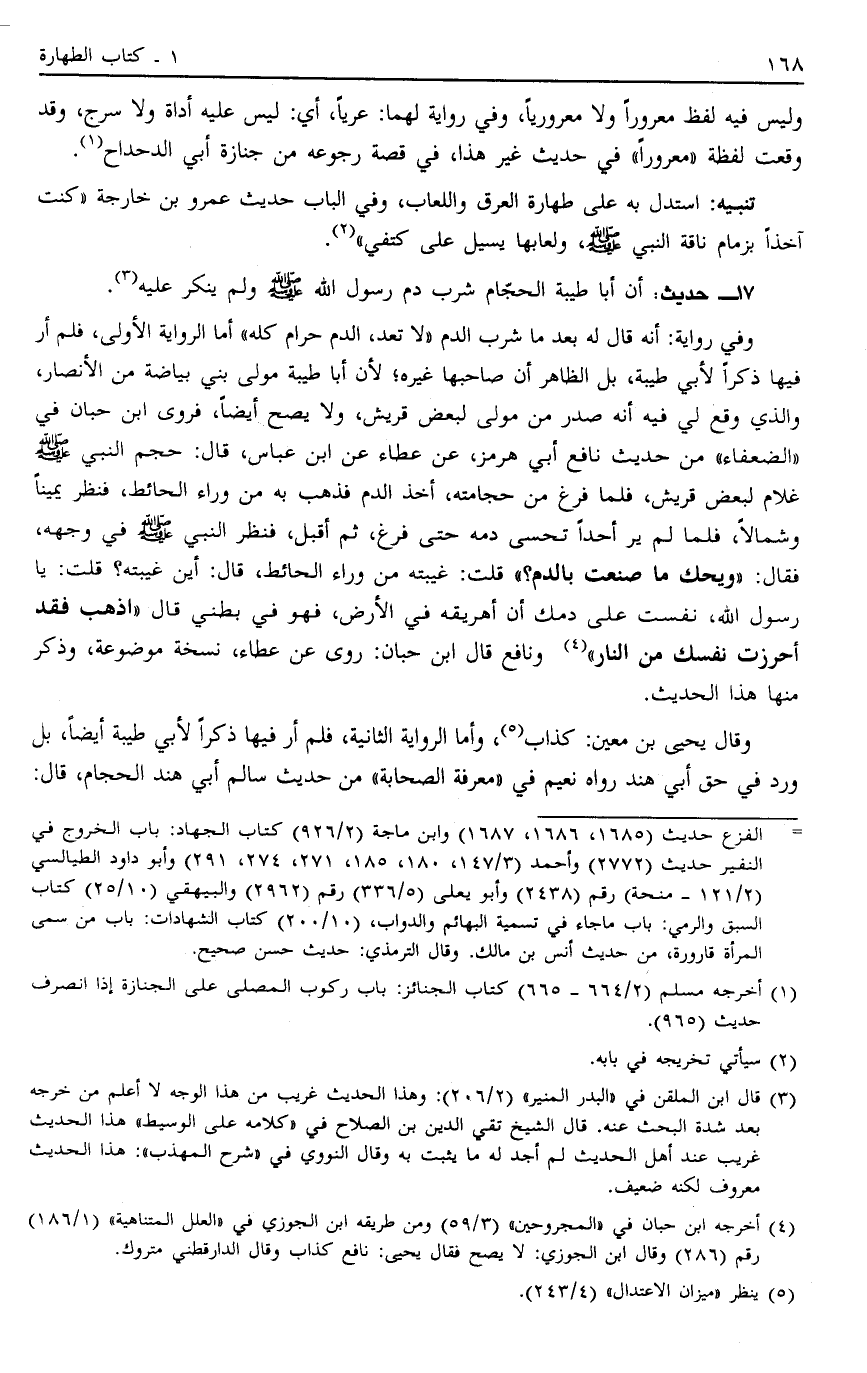 ١٦٨
١ ـ كتاب الطهارة
وليس فيه لفظ معروراً ولا معرورياً، وفي رواية لهما: عرياً، أي: ليس عليه أداة ولا سرج، وقد
وقعت لفظة «معروراً» في حديث غير هذا، في قصة رجوعه من جنازة أبي الدحداح(١).
تنبيه: استدل به على طهارة العرق واللعاب، وفي الباب حديث عمرو بن خارجة «كنت
آخذاً بزمام ناقة النبي ﷺ، ولعابها يسيل على كتفي»(٢).
١٧ـ حديث: أن أبا طيبة الحجّام شرب دم رسول الله ﷺ ولم ينكر عليه(٣).
وفي رواية: أنه قال له بعد ما شرب الدم «لا تعد، الدم حرام كله» أما الرواية الأولى، فلم أر
فيها ذكراً لأبي طيبة، بل الظاهر أن صاحبها غيره؛ لأن أبا طيبة مولى بني بياضة من الأنصار،
والذي وقع لي فيه أنه صدر من مولى لبعض قريش، ولا يصح أيضاً، فروى ابن حبان في
«الضعفاء» من حديث نافع أبي هرمز، عن عطاء عن ابن عباس، قال: حجم النبي ﷺ
غلام لبعض قريش، فلما فرغ من حجامته، أخذ الدم فذهب به من وراء الحائط، فنظر يميناً
وشمالاً، فلما لم ير أحداً تحسى دمه حتى فرغ، ثم أقبل، فنظر النبي ﷺ في وجهه،
فقال: «ويحك ما صنعت بالدم؟» قلت: غيبته من وراء الحائط، قال: أين غيبته؟ قلت: يا
رسول الله، نفست على دمك أن أهريقه في الأرض، فهو في بطني قال «اذهب فقد
أحرزت نفسك من النار»(٤) ونافع قال ابن حبان: روى عن عطاء، نسخة موضوعة، وذكر
منها هذا الحديث.
وقال يحيى بن معين: كذاب(٥)، وأما الرواية الثانية، فلم أر فيها ذكراً لأبي طيبة أيضاً، بل
ورد في حق أبي هند رواه نعيم في «معرفة الصحابة» من حديث سالم أبي هند الحجام، قال:
= الفزع حديث (١٦٨٥، ١٦٨٦، ١٦٨٧) وابن ماجة (٩٢٦/٢) كتاب الجهاد: باب الخروج في
النفير حديث (٢٧٧٢) وأحمد (١٤٧/٣، ١٨٠، ١٨٥، ٢٧١، ٢٧٤، ٢٩١) وأبو داود الطيالسي
(١٢١/٢ ـ منحة) رقم (٢٤٣٨) وأبو يعلى (٣٣٦/٥) رقم (٢٩٦٢) والبيهقي (٢٥/١٠) كتاب
السبق والرمي: باب ماجاء في تسمية البهائم والدواب، (٢٠٠/١٠) كتاب الشهادات: باب من سمى
المرأة قارورة، من حديث أنس بن مالك. وقال الترمذي: حديث حسن صحيح.
(١) أخرجه مسلم (٦٦٤/٢ ـ ٦٦٥) كتاب الجنائز: باب ركوب المصلى على الجنازة إذا انصرف
حديث (٩٦٥).
(٢) سيأتي تخريجه في بابه.
(٣) قال ابن الملقن في «البدر المنير» (٢٠٦/٢): وهذا الحديث غريب من هذا الوجه لا أعلم من خرجه
بعد شدة البحث عنه. قال الشيخ تقي الدين بن الصلاح في «كلامه على الوسيط» هذا الحديث
غريب عند أهل الحديث لم أجد له ما يثبت به وقال النووي في «شرح المهذب»: هذا الحديث
معروف لكنه ضعيف.
(٤) أخرجه ابن حبان في «المجروحين» (٥٩/٣) ومن طريقه ابن الجوزي في «العلل المتناهية» (١٨٦/١)
رقم (٢٨٦) وقال ابن الجوزي: لا يصح فقال يحيى: نافع كذاب وقال الدارقطني متروك.
(٥) ينظر «ميزان الاعتدال» (٢٤٣/٤).